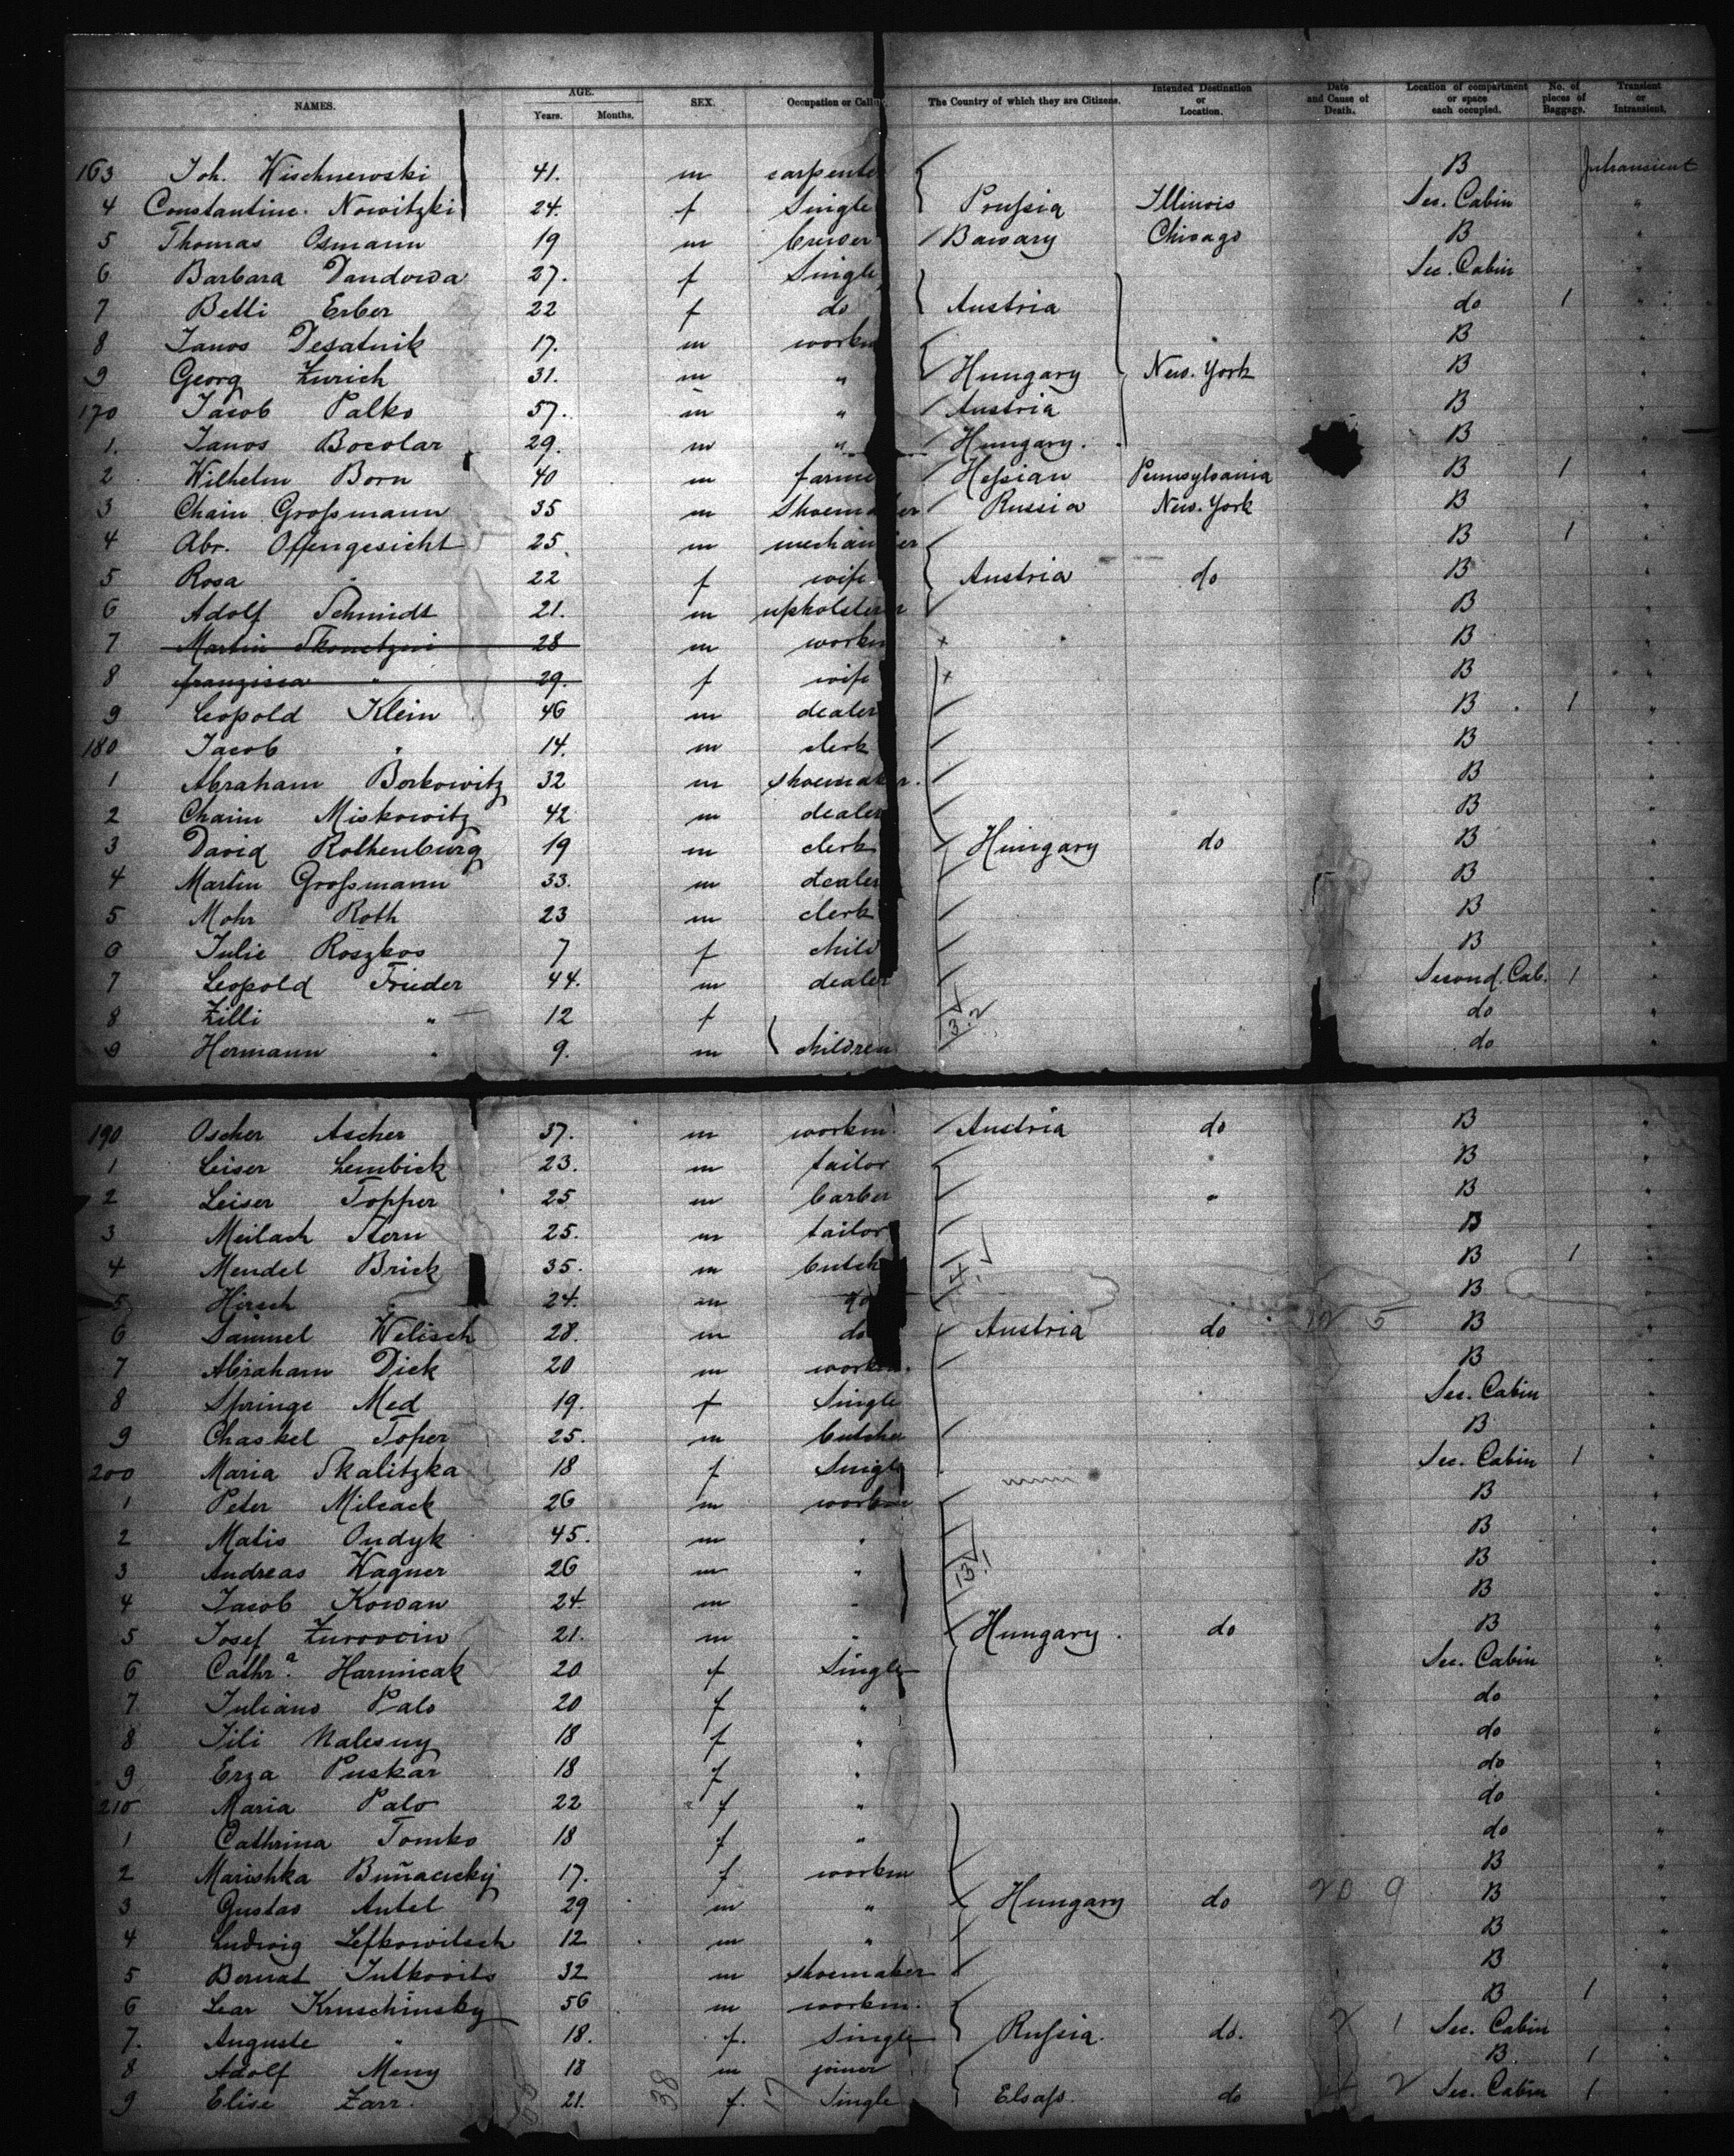 NAMES. AGE. Years. Months. SEX. Occupation or Calling The Country of which they are Citizens. Intended Destination or Location. Date and Cause of Death. Location of compartment or space each occupied. No. of pieces of Baggage. Transient or Intransient.
163 Joh. Wischnewski 41. m carpente B Intransient
4 Constantine Nowitzki 24. f Single Prussia Illinois Sec. Cabin "
5 Thomas Osmann 19 m brewer Bawary Chicago B "
6 Barbara Dandowa 27. f Single Sec. Cabin "
7 Betti Erber 22 f do Austria do 1 "
8 Janos Desatnik 17. m workm B "
9 Georg Zurich 31. m " Hungary New. York B "
170 Jacob Palko 57. m " Austria B "
1. Janos Bocolar 29. m " Hungary. B "
2 Wilhelm Born 40 m farme Hessian Pennsylvania B 1 "
3 Chaim Grossmann 35 m Shoemaker Russia New. York B "
4 Abr. Offengesicht 25. m mechan er B 1 "
5 Rosa " 22 f wife Austria do B "
6 Adolf Schmidt 21. m upholsterer B "
7 Martin 28 m workm + B "
8 franzisca " 29. f wife + B "
9 Leopold Klein 46 m dealer B 1 "
180 Jacob " 14. m clerk B "
1 Abraham Borkowitz 32 m shoemaker. B "
2 Chaim Miskowitz 42 m dealer B "
3 David Rothenburg 19 m clerk Hungary do B "
4 Martin Grossmann 33. m dealer B "
5 Mohr Roth 23 m clerk B "
6 Julie Roszkos 7 f child B "
7 Leopold Frieder 44. m dealer Second. Cab. 1 "
8 Zilli " 12 f do "
9 Hermann " 9. m children do "
190 Oscher Ascher 37. m workm. Austria do B "
1 Leiser Lembick 23. m tailor " B "
2 Leiser Topper 25 m barber " B "
3 Meilach Stern 25. m tailor B "
4 Mendel Brick 35. m butch B 1 "
5 Hirsch " 24. m do B "
6 Samuel Welisch 28. m do Austria do 12 5 B "
7 Abraham Dick 20 m workm. B "
8 Springe Med 19. f Single Sec. Cabin "
9 Chaskel Toper 25. m butcher B "
200 Maria Skalitzka 18 f Single Sec. Cabin 1 "
1 Peter Milcack 26 m workm B "
2 Matis Ondyk 45. m " B "
3 Andreas Wagner 26 m " B "
4 Jacob Kowan 24. m " B "
5 Josef 21. m " Hungary. do B "
6 Cathr.a Harnicak 20 f Single Sec. Cabin "
7 Juliano Palo 20 f " do "
8 Jili Nalesny 18 f " do "
9 Erza Puskar 18 f " do "
210 Maria Palo 22 f " do "
1 Cathrina Tomko 18 f " do "
2 Marishka 17. f workm B "
3 Gustav Antel 29 m " Hungary do 20 9 B "
4 Ludwig Lefkowitsch 12 m " B "
5 Bernat Jutkovits 32 m shoemaker B "
6 Lear Kruschinsky 56 m workm. B 1 "
7. Auguste " 18. f. Single Russia. do. 2 1 Sec. Cabin "
8 Adolf Meny 18 m joiner B 1 "
9 Elise Zarr. 21. 38 f. 17 Single Elsass. do 2 Sec. Cabin 1 "